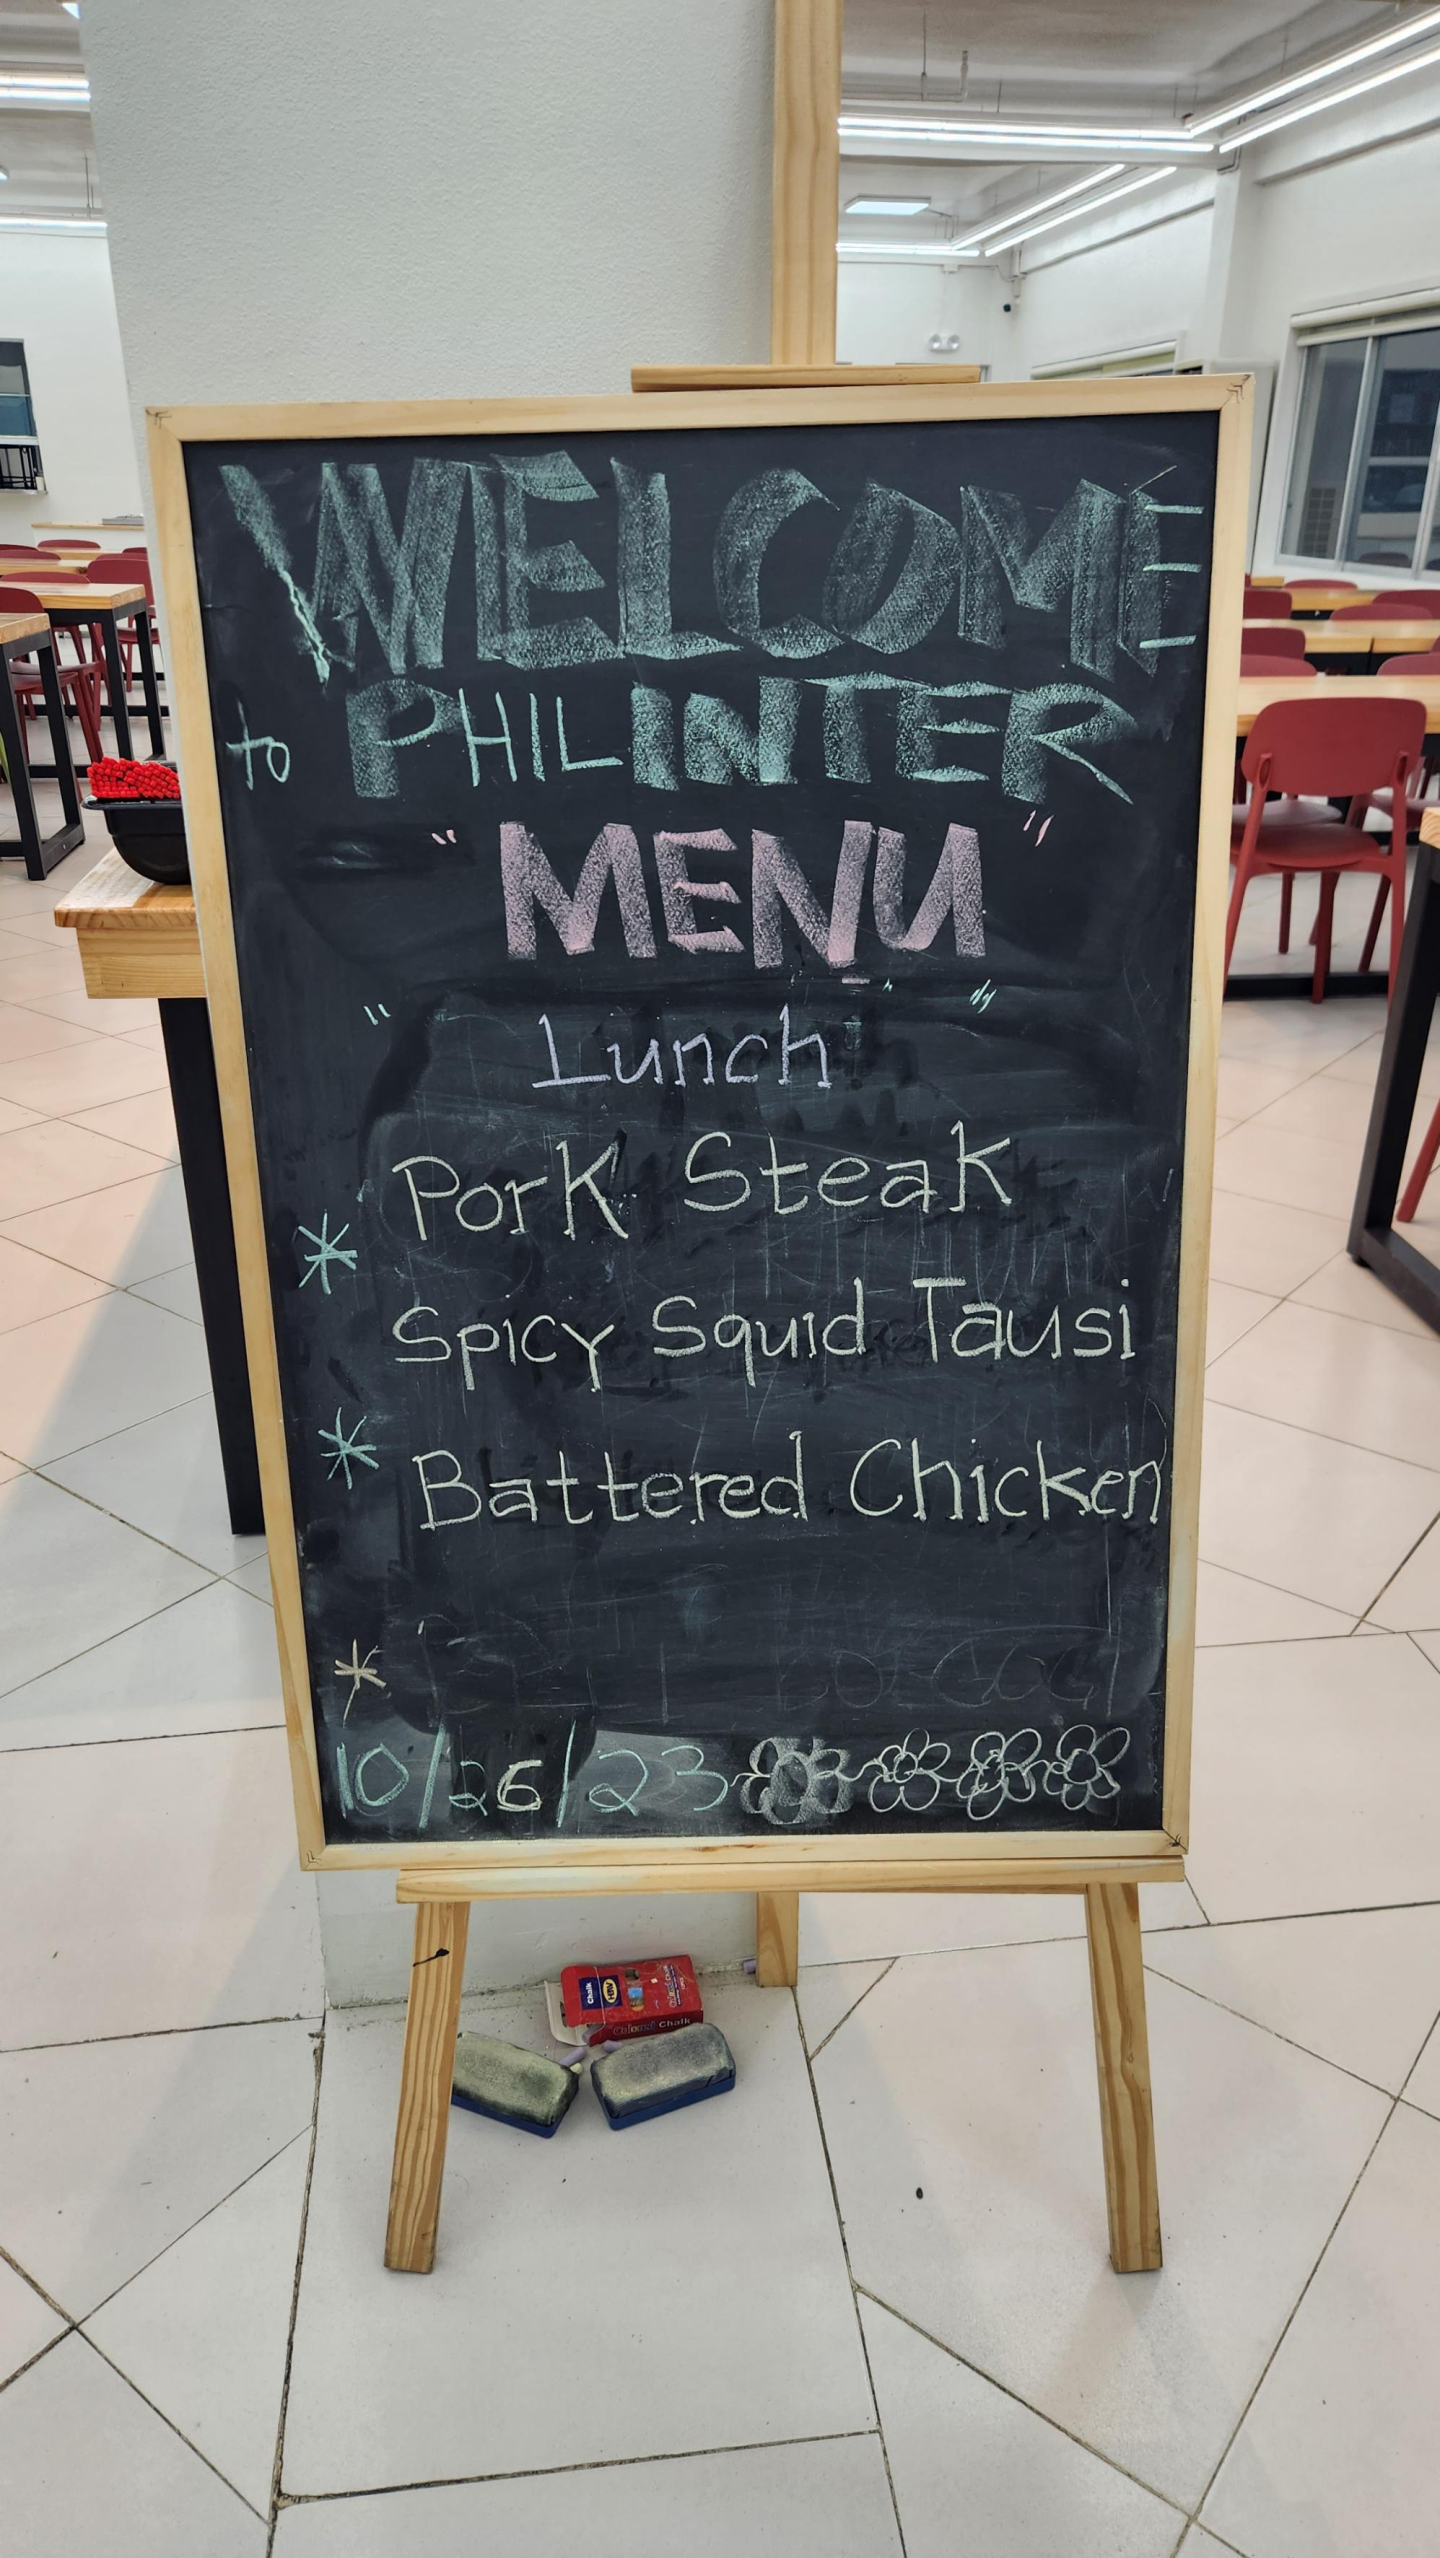 WELCOME
to PHILINTER
"MENU"
" Lunch "
Pork Steak
*
Spicy Squid Tausi
* Battered Chicken
*
10/26/23
Chalk
HBW
Colored Chalk
Colored Chalk